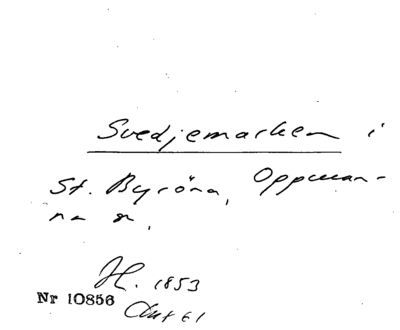 Svedjemarken i
St. Byröna, Oppman-
na sn.
H. 1853
Nr 10856
Akt 61